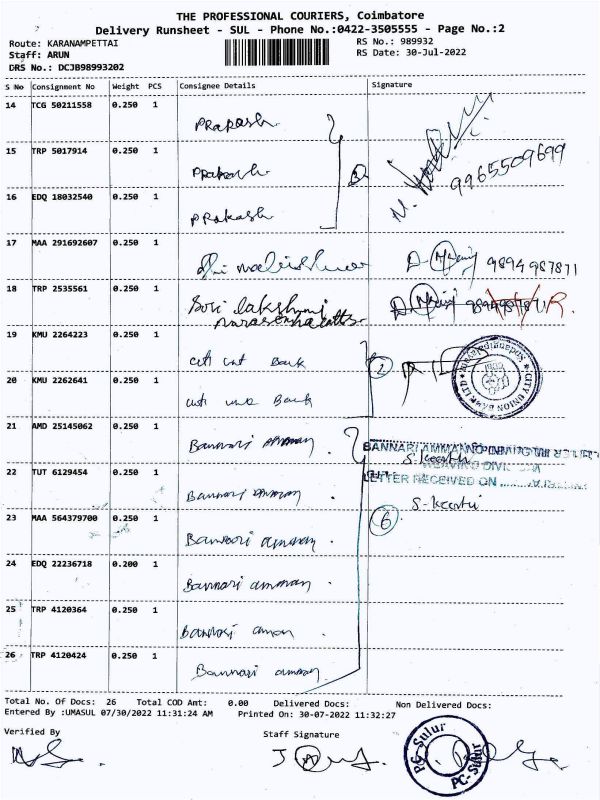 THE PROFESSIONAL COURIERS, Coimbatore
Delivery Runsheet - SUL - Phone No.:0422-3505555 - Page No.:2
Route: KARANAMPETTAI RS No.: 989932
Staff: ARUN RS Date: 30-Jul-2022
DRS No.: DCJB98993202
S No Consignment No Weight PCS Consignee Details Signature
14 TCG 50211558 0.250 1 Prakash
15 TRP 5017914 0.250 1 Prakash 3 9965509699
16 EDQ 18032540 0.250 1 Prakash
17 MAA 291692607 0.250 1 9894987871
18 TRP 2535561 0.250 1 Sri lakshmi
19 KMU 2264223 0.250 1 Bank 2
20 KMU 2262641 0.250 1 Bank
CITY UNION BANK LTD
21 AMD 25145062 0.250 1 Bannari amman
BANNARI AMMAN
S. Keerthi
22 TUT 6129454 0.250 1 Bannari amman
WEAVING DIVISION
LETTER RECEIVED ON
23 MAA 564379700 0.250 1 Bannari amman 6 S. Keerthi
24 EDQ 22236718 0.200 1 Bannari amman
25 TRP 4120364 0.250 1 Bannari amman
26 TRP 4120424 0.250 1 Bannari amman
Total No. Of Docs: 26 Total COD Amt: 0.00 Delivered Docs: Non Delivered Docs:
Entered By :UMASUL 07/30/2022 11:31:24 AM Printed On: 30-07-2022 11:32:27
Verified By Staff Signature
PC-Sulur
PC-Sulur